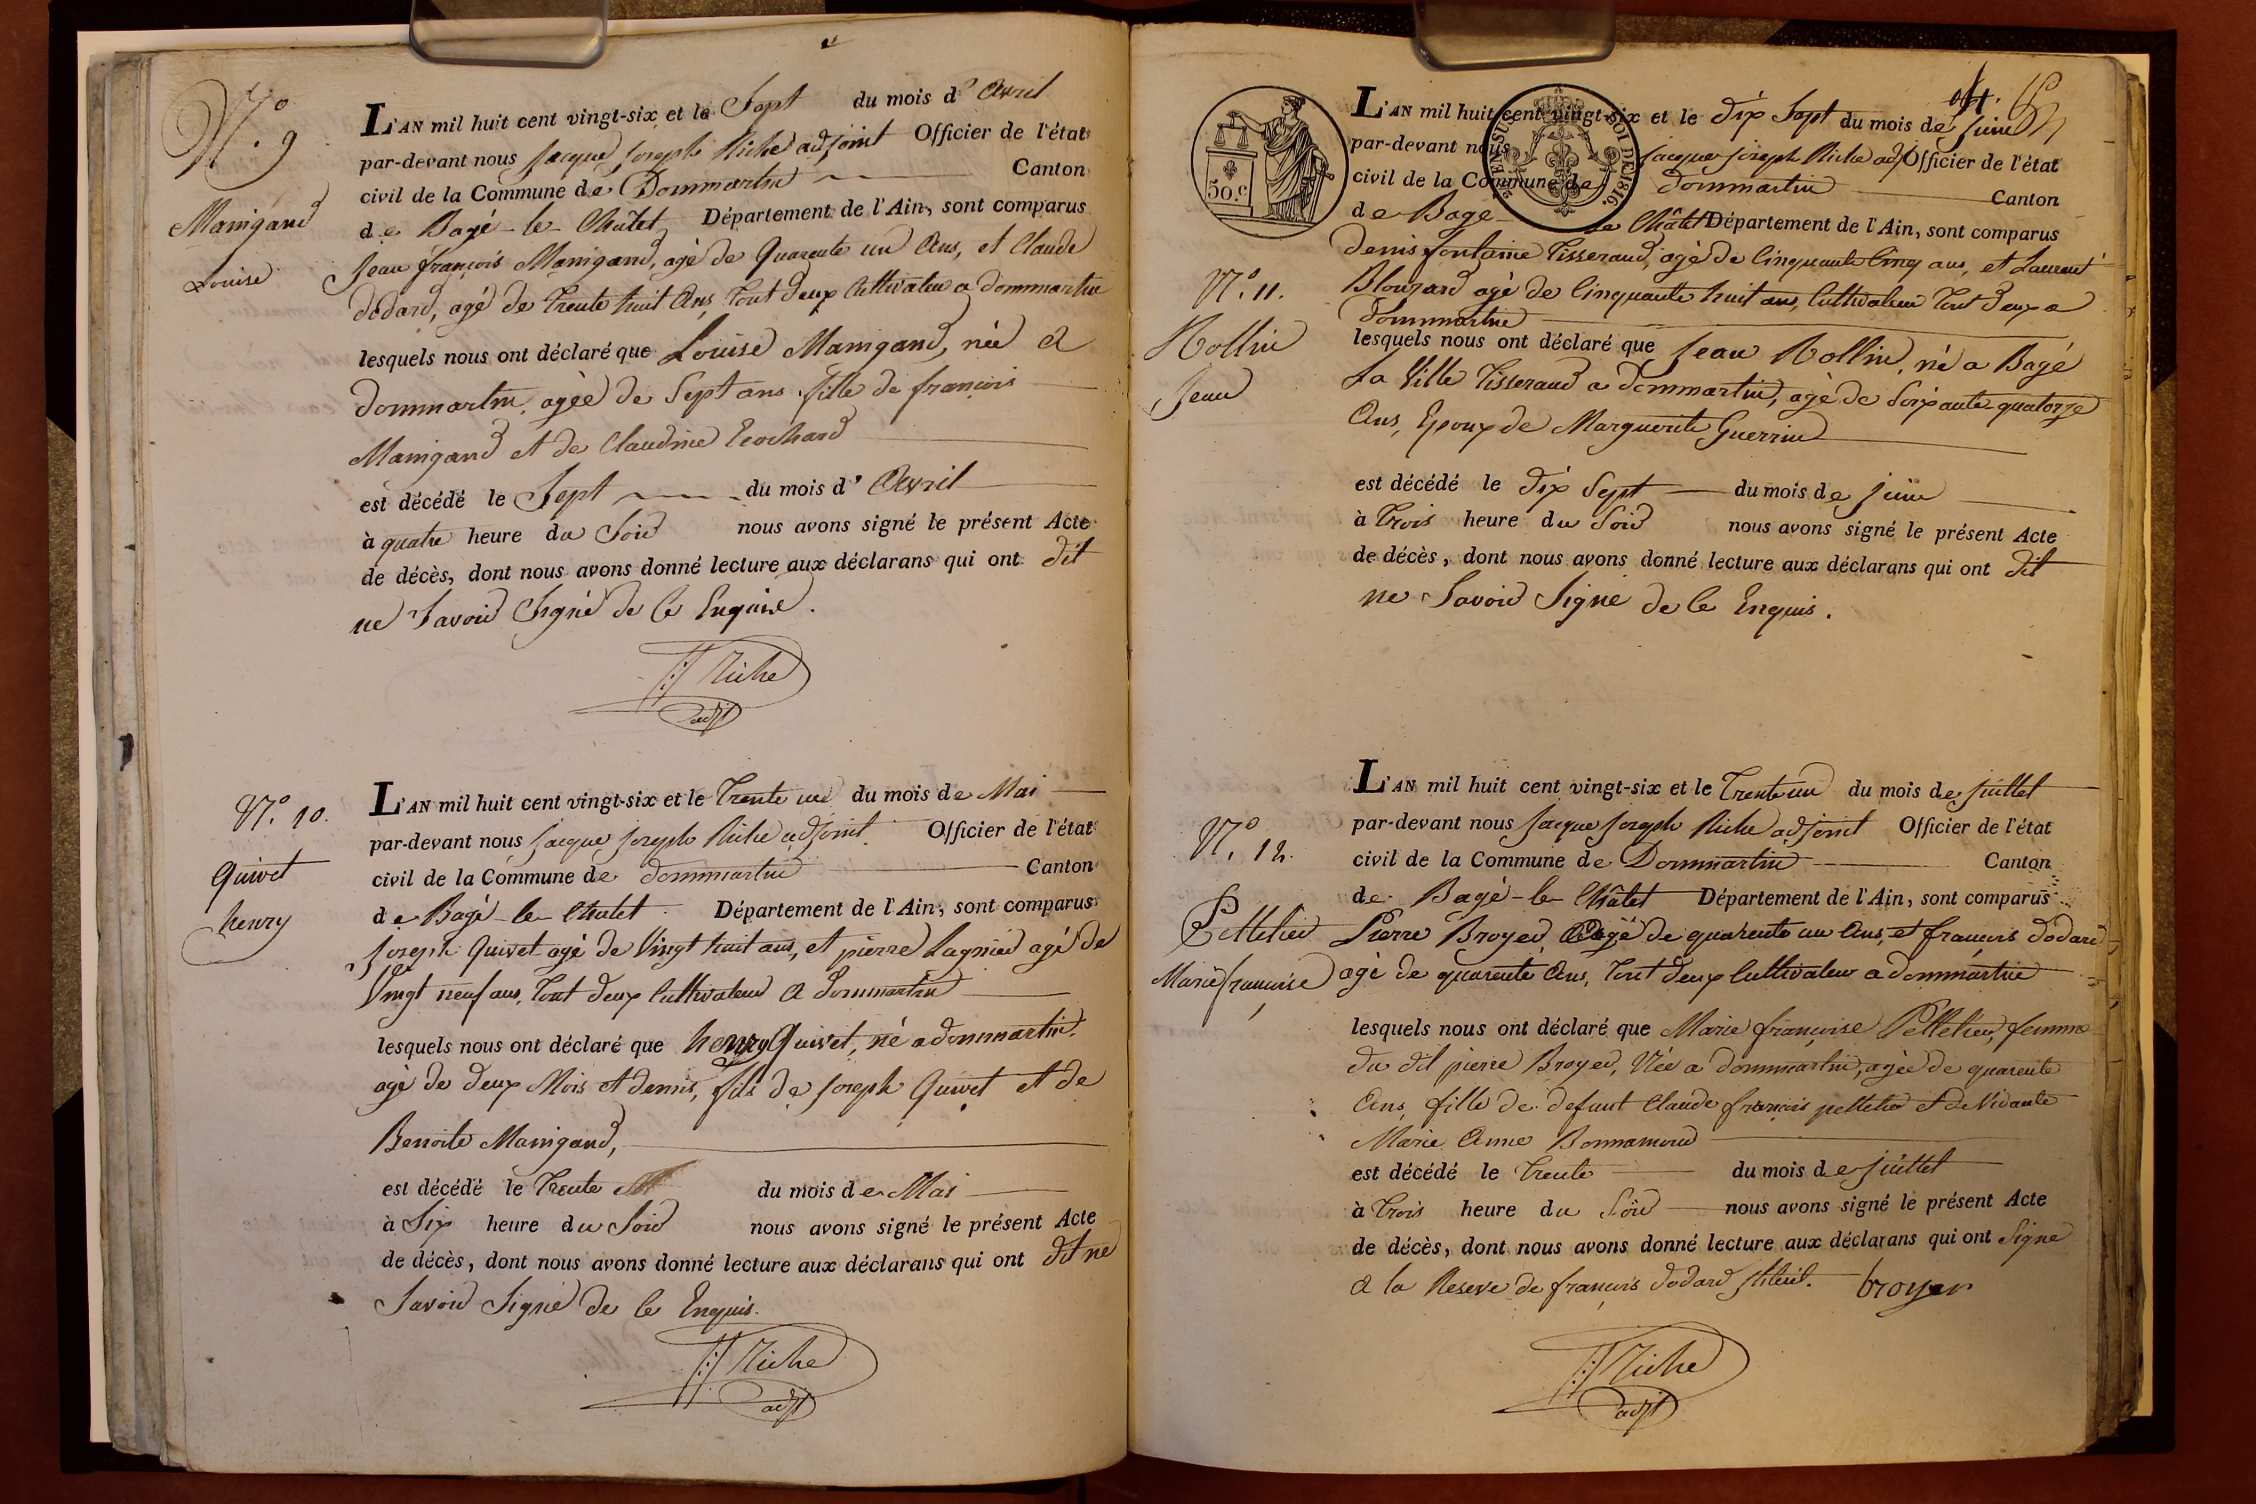 N.° 9
Manigand
Louise
L'AN mil huit cent vingt-six et le Sept du mois d' Avril
par-devant nous Jacque Joseph Riche adjoint Officier de l'état
civil de la Commune de Dommartin Canton
de Bagé-le-Châtel Département de l'Ain, sont comparus
Jean françois Manigand, agé de Quarente un Ans, et Claude
dodard, agé de trente huit Ans, tout deux Cultivateur a dommartin
lesquels nous ont déclaré que Louise Manigand, née a
dommartin, agée de Sept ans, fille de françois
Manigand et de Claudine Ecochard
est décédé le Sept du mois d' Avril
à quatre heure du Soir nous avons signé le présent Acte
de décès, dont nous avons donné lecture aux déclarans qui ont dit
ne Savoir Signé de Ce Enquise.
JJ Riche
adjt
N.° 10.
Quivet
henry
L'AN mil huit cent vingt-six et le Trente un du mois de Mai
par-devant nous Jacque Joseph Riche adjoint Officier de l'état
civil de la Commune de dommartin Canton
de Bagé-le-Chatel Département de l'Ain, sont comparus
Joseph Quivet agé de Vingt huit ans, et pierre Lagnier agé de
Vingt neuf ans, tout deux Cultivateur a Dommartin
lesquels nous ont déclaré que henry Quivet, né a dommartin.
agé de deux Mois et demis, fils de Joseph Quivet et de
Benoite Manigand,
est décédé le Trente du mois de Mai
à Six heure du Soir nous avons signé le présent Acte
de décès, dont nous avons donné lecture aux déclarans qui ont dit ne
Savoir Signé de Ce Enquis.
JJ Riche
adjt
50.c
DE 1816.
N.° 11.
Rollin
Jean
L'AN mil huit cent vingt-six et le dix Sept du mois de juin
par-devant nous Jacque Joseph Riche adjt Officier de l'état
civil de la Commune de dommartin Canton
de Bagé le Châtel Département de l'Ain, sont comparus
denis fontaine Tisserand, agé de Cinquante Cinq ans, et Laurent
Blouzard agé de Cinquante huit ans, Cultivateur tout deux a
dommartin
lesquels nous ont déclaré que Jean Rollin, né a Bagé
La Ville Tisserand a dommartin, agé de Soixante quatorze
Ans, Epoux de Marguerite Guerrin
est décédé le dix Sept du mois de juin
à Trois heure du Soir nous avons signé le présent Acte
de décès, dont nous avons donné lecture aux déclarans qui ont dit
ne Savoir Signé de Ce Enquis.
N.° 12.
Pelletier
Marie françoise
L'AN mil huit cent vingt-six et le Trente un du mois de juillet
par-devant nous Jacque Joseph Riche adjoint Officier de l'état
civil de la Commune de Dommartin Canton
de Bagé-le-Châtel Département de l'Ain, sont comparus
Pierre Broyer, Agé de quarente un Ans, et françois dodard
agé de quarente Ans, tout deux Cultivateur a dommartin
lesquels nous ont déclaré que Marie françoise Pelletier, femme
du dit pierre Broyer, Née a dommartin, agée de quarente
Ans, fille de defunt Claude françois pelletier et de Vivante
Marie Anne Bonnamour
est décédé le Trente du mois de juillet
à Trois heure du Soir nous avons signé le présent Acte
de décès, dont nous avons donné lecture aux déclarans qui ont Signé
a la Reserve de françois dodard broyer
JJ Riche
adjt